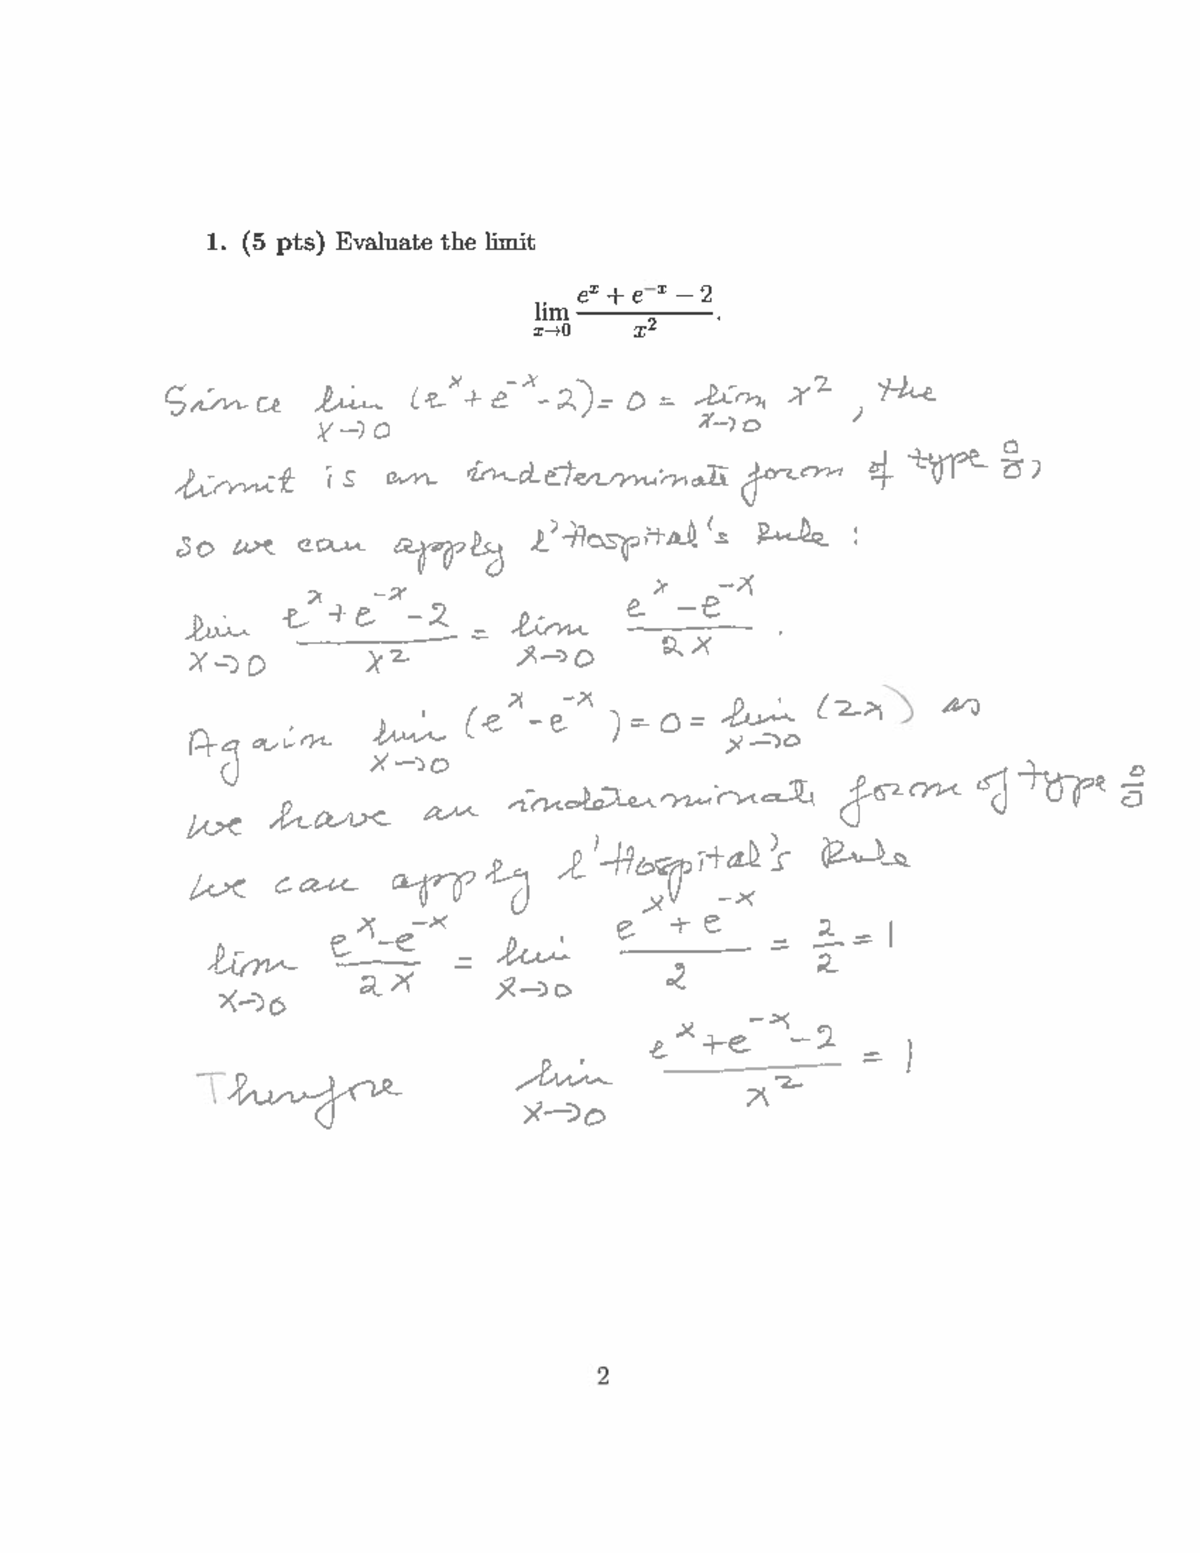 1. (5 pts) Evaluate the limit
lim x→0 (e^x + e^{-x} − 2)/x^2.
Since lim x→0 (e^x + e^{-x} - 2) = 0 = lim x→0 x^2, the
limit is an indeterminate form of type 0/0,
so we can apply l'Hospital's Rule:
lim x→0 (e^x + e^{-x} - 2)/x^2 = lim x→0 (e^x - e^{-x})/2x.
Again lim x→0 (e^x - e^{-x}) = 0 = lim x→0 (2x) as
we have an indeterminate form of type 0/0
we can apply l'Hospital's Rule
lim x→0 (e^x - e^{-x})/2x = lim x→0 (e^x + e^{-x})/2 = 2/2 = 1
Therefore lim x→0 (e^x + e^{-x} - 2)/x^2 = 1
2